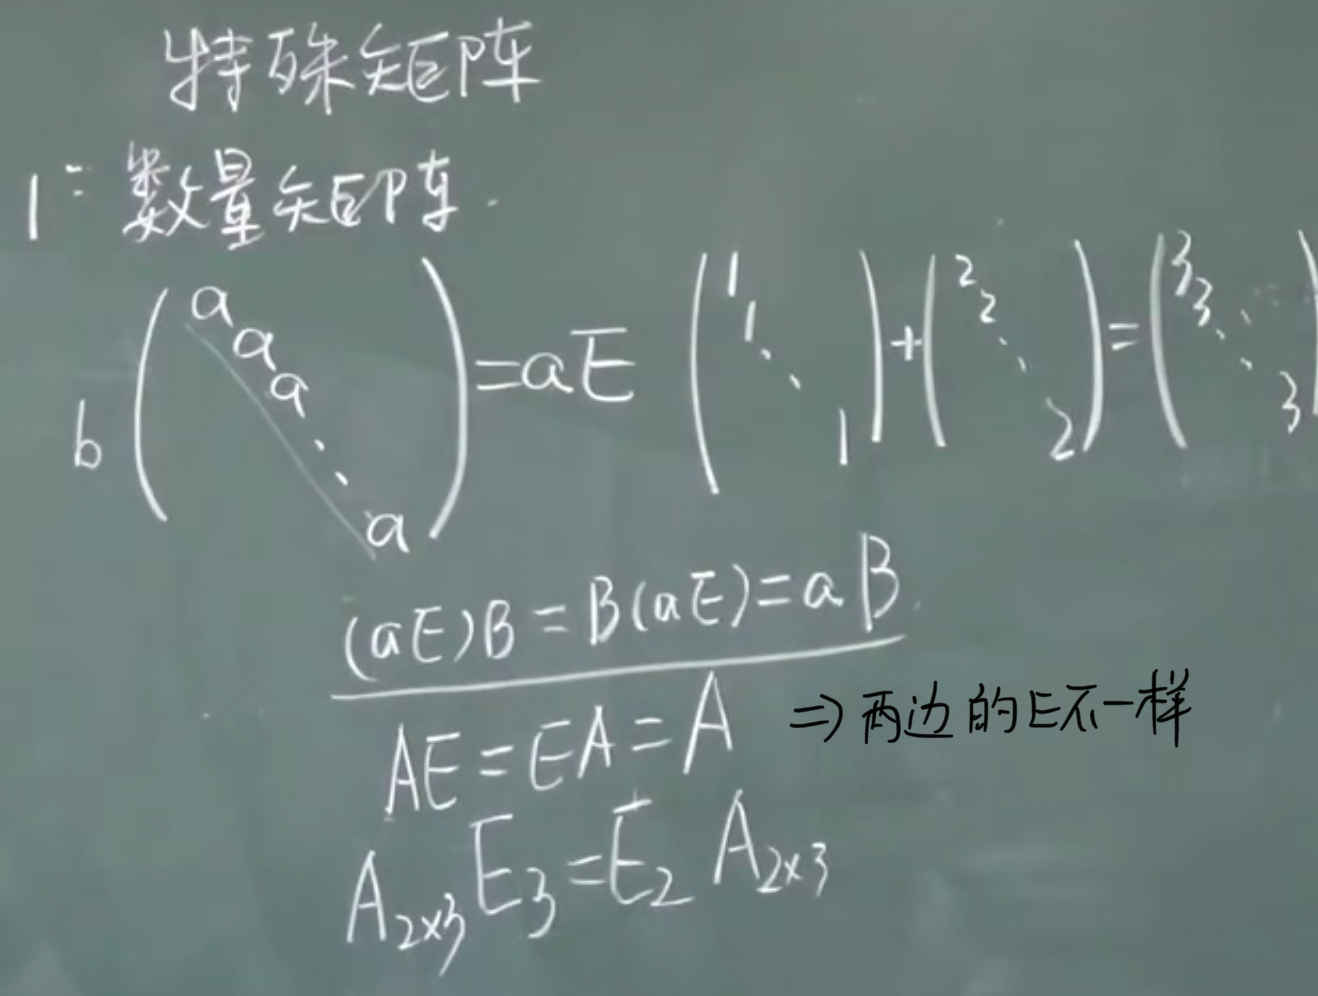 特殊矩阵
1: 数量矩阵.
b(a a a ⋱ a)=aE (1 1 ⋱ 1)+(2 2 ⋱ 2)=(3 3 ⋱ 3)
(aE)B=B(aE)=aB.
AE=EA=A ⇒两边的E不一样
A₂ₓ₃E₃=E₂A₂ₓ₃